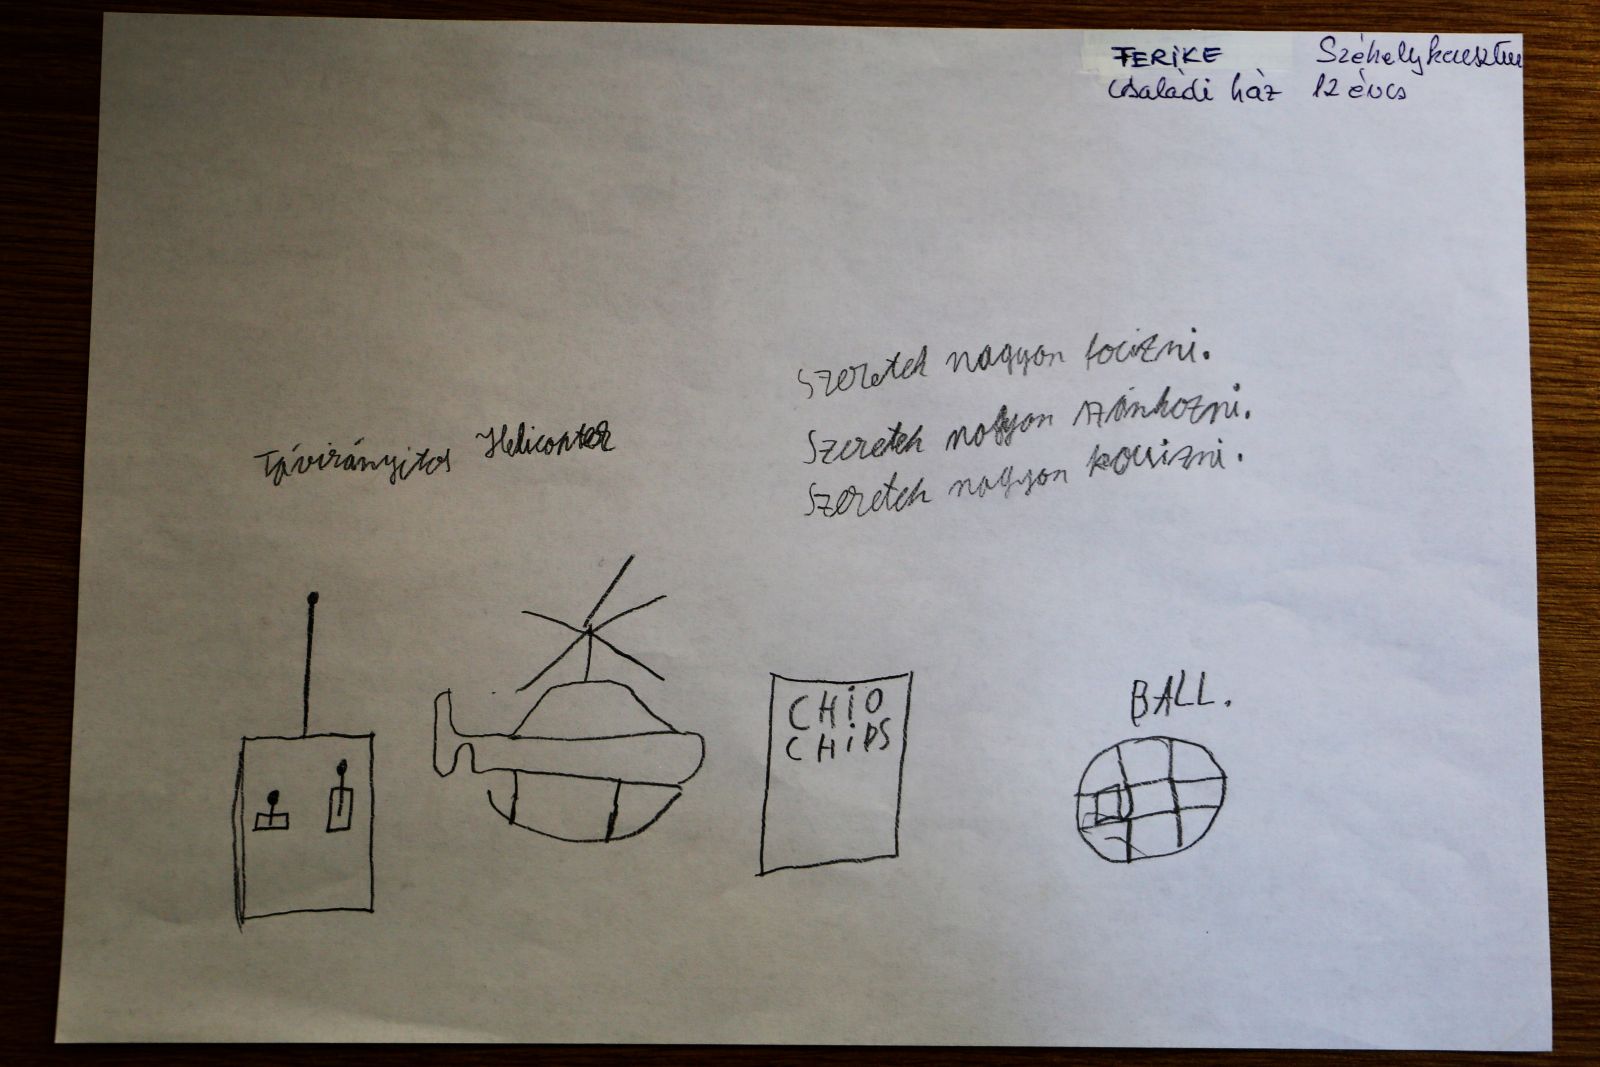 FERIKE Székelykeresztúr
családi ház 12 éves
Szeretek nagyon focizni.
Szeretek nagyon szánkozni.
Szeretek nagyon kocsizni.
Távirányitos Helicopter
CHiO
CHiPS
BALL.